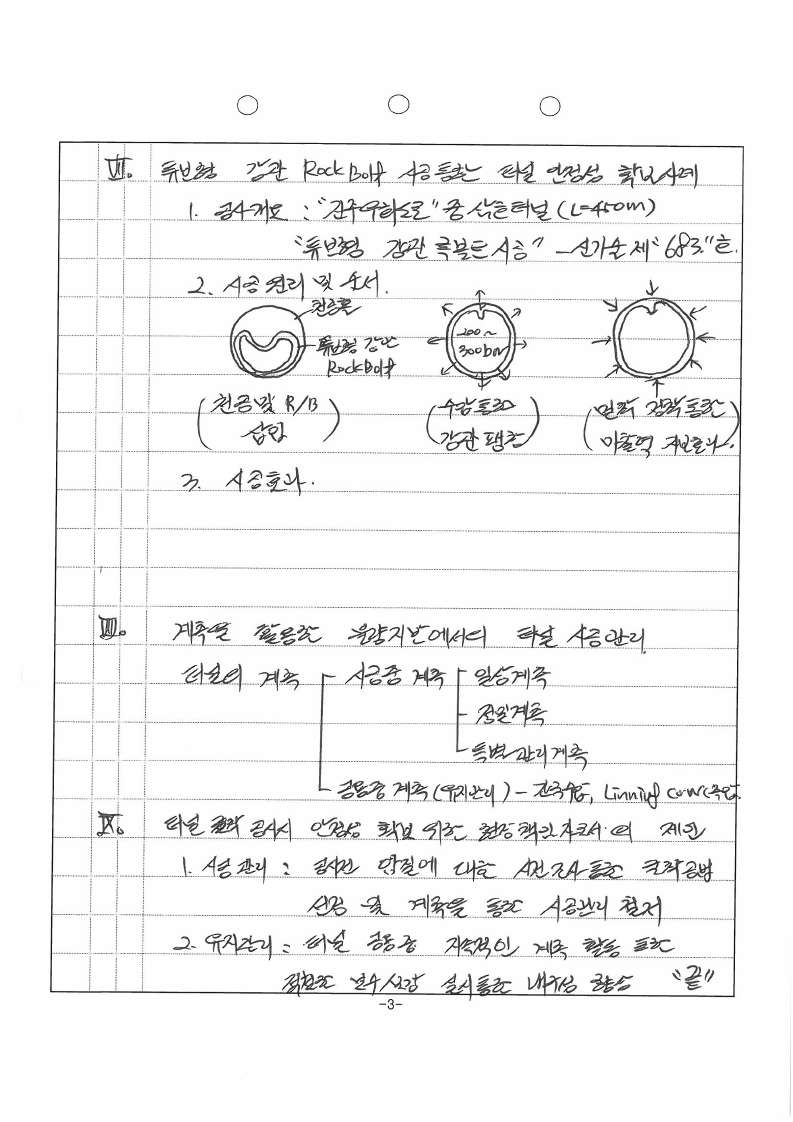 Ⅶ. 튜브형 강관 Rock Bolt 시공통한 터널 안정성 확보사례
1. 공사개요 : "진주우회도로" 중 터널 (L=450m)
"튜브형 강관 록볼트 시공" - 신기술 제 "683"호.
2. 시공 원리 및 순서.
천공홀
튜브형 강관
Rock Bolt
200~
300bar
(천공 및 R/B
삽입)
(수압통한
강관 팽창)
(면적 접착통한
마찰력 지보효과.)
3. 시공효과.
Ⅷ. 계측을 활용한 불량지반에서의 터널 시공관리
터널의 계측
시공중 계측
일상계측
정밀계측
특별관리계측
공용중 계측 (유지관리) - 간극수압, Linning conc 측압.
Ⅸ. 터널 굴착 공사시 안정성 확보 위한 현장 책임자로서의 제언
1. 시공 관리 : 공사전 암질에 대한 사전조사 통한 굴착공법
선정 및 계측을 통한 시공관리 철저
2. 유지관리 : 터널 공용중 지속적인 계측 활동 통한
적절한 보수보강 실시통한 내구성 향상 "끝"
-3-